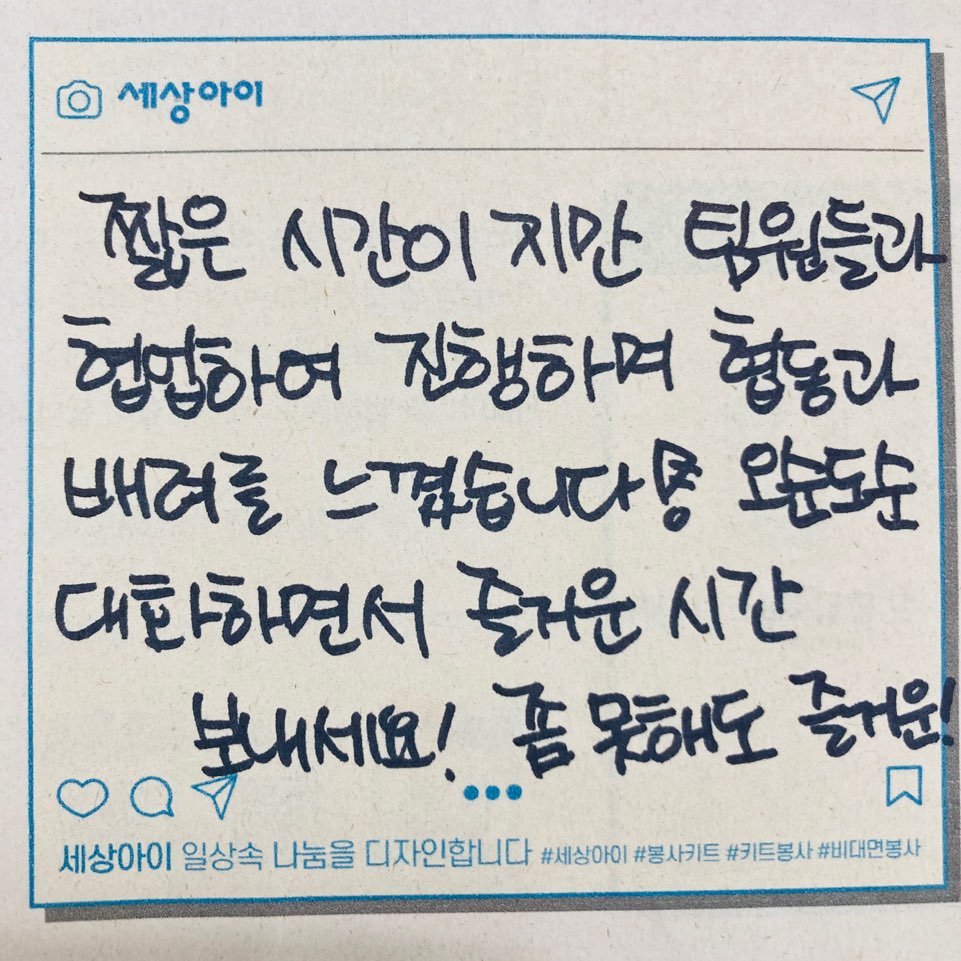 세상아이
짧은 시간이지만 팀원들과
협업하여 진행하며 협동과
배려를 느꼈습니다 오순도순
대화하면서 즐거운 시간
보내세요! 좀 못해도 즐거운!
세상아이 일상속 나눔을 디자인합니다 #세상아이 #봉사키트 #키트봉사 #비대면봉사